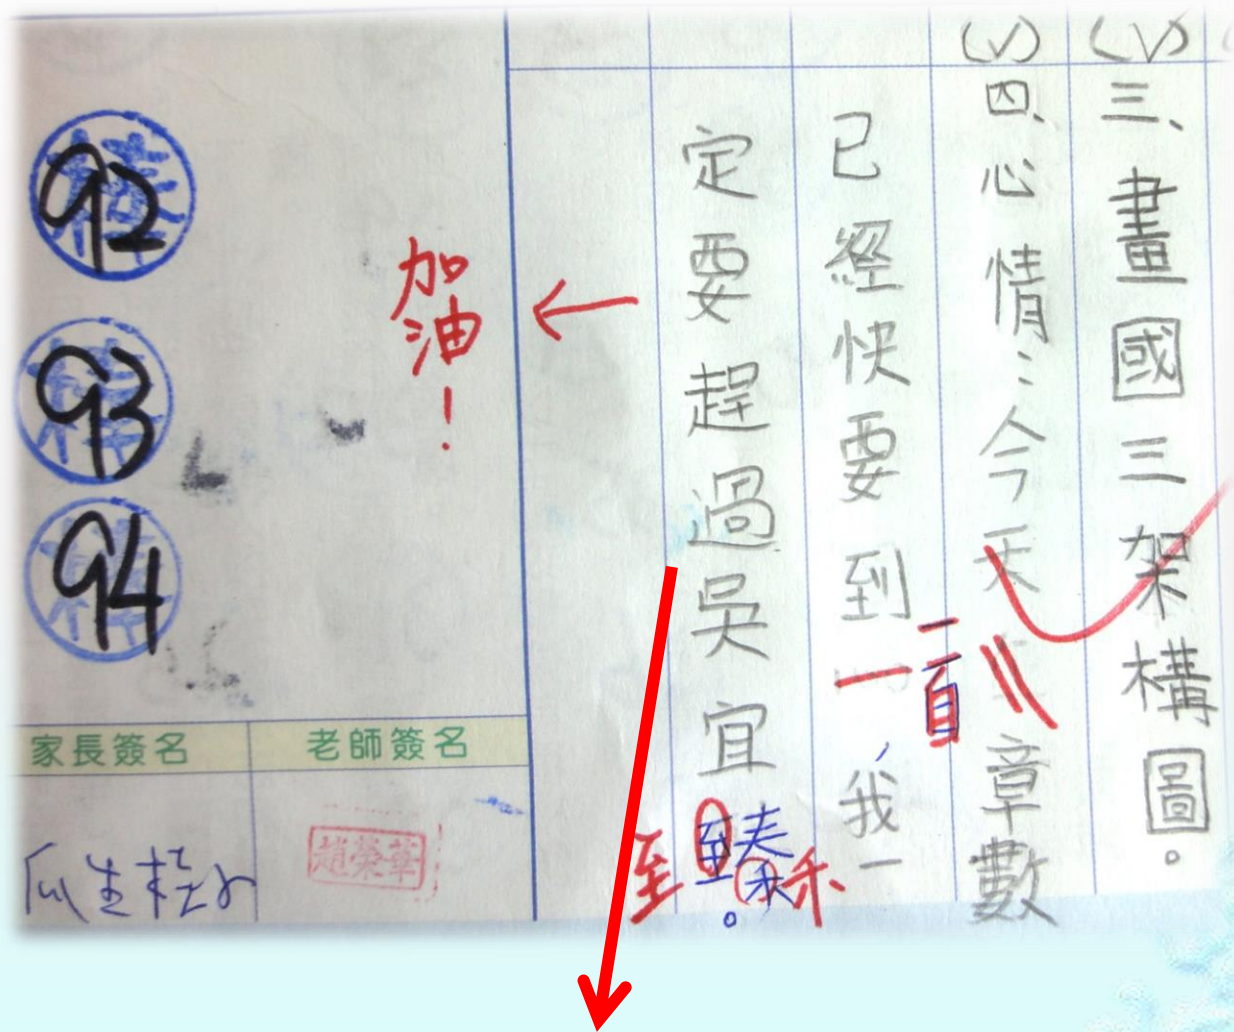 (✓)三、畫國三架構圖。
(✓)四、心情：今天章數
已經快要到一百，我一
定要趕過吳宜臻。
禾
至
加油！
92
93
94
老師簽名
家長簽名